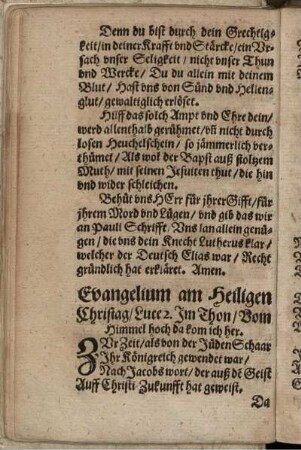 Denn du bist durch dein Grechtig⸗
keit/ in deiner Krafft vnd Stärcke/ ein Vr⸗
sach vnser Seligkeit/ nicht vnser Thun
vnd Wercke/ Du du allein mit deinem
Blut/ Hast vns von Sünd vnd Hellen⸗
glut/ gewaltiglich erlöset.
Hilff das solch Ampt vnd Ehre dein/
werd allenthalb gerühmet/ vn̄ nicht durch
losen Heuchelschein/ so jämmerlich ver⸗
thümet/ Als wol der Bapst auß stoltzem
Muth/ mit seinen Jesuiten thut/ die hin
vnd wider schleichen.
Behüt vns HErr für jhrer Gifft/ für
jhrem Mord vnd Lügen/ vnd gib das wir
an Pauli Schrifft/ Vns lan allein genü⸗
gen/ die vns dein Knecht Lutherus klar/
welcher der Deutsch Elias war/ Recht
gründlich hat erkläret. Amen.
Evangelium am Heiligen
Christag/ Luce 2. Im Thon/ Vom
Himmel hoch da kom ich her.
ZVr Zeit/ als von der Jüden Schaar
Jhr Königreich gewendet war/
Nach Jacobs wort/ der auß dē Geist
Auff Christi Zukunfft hat geweist.
Da